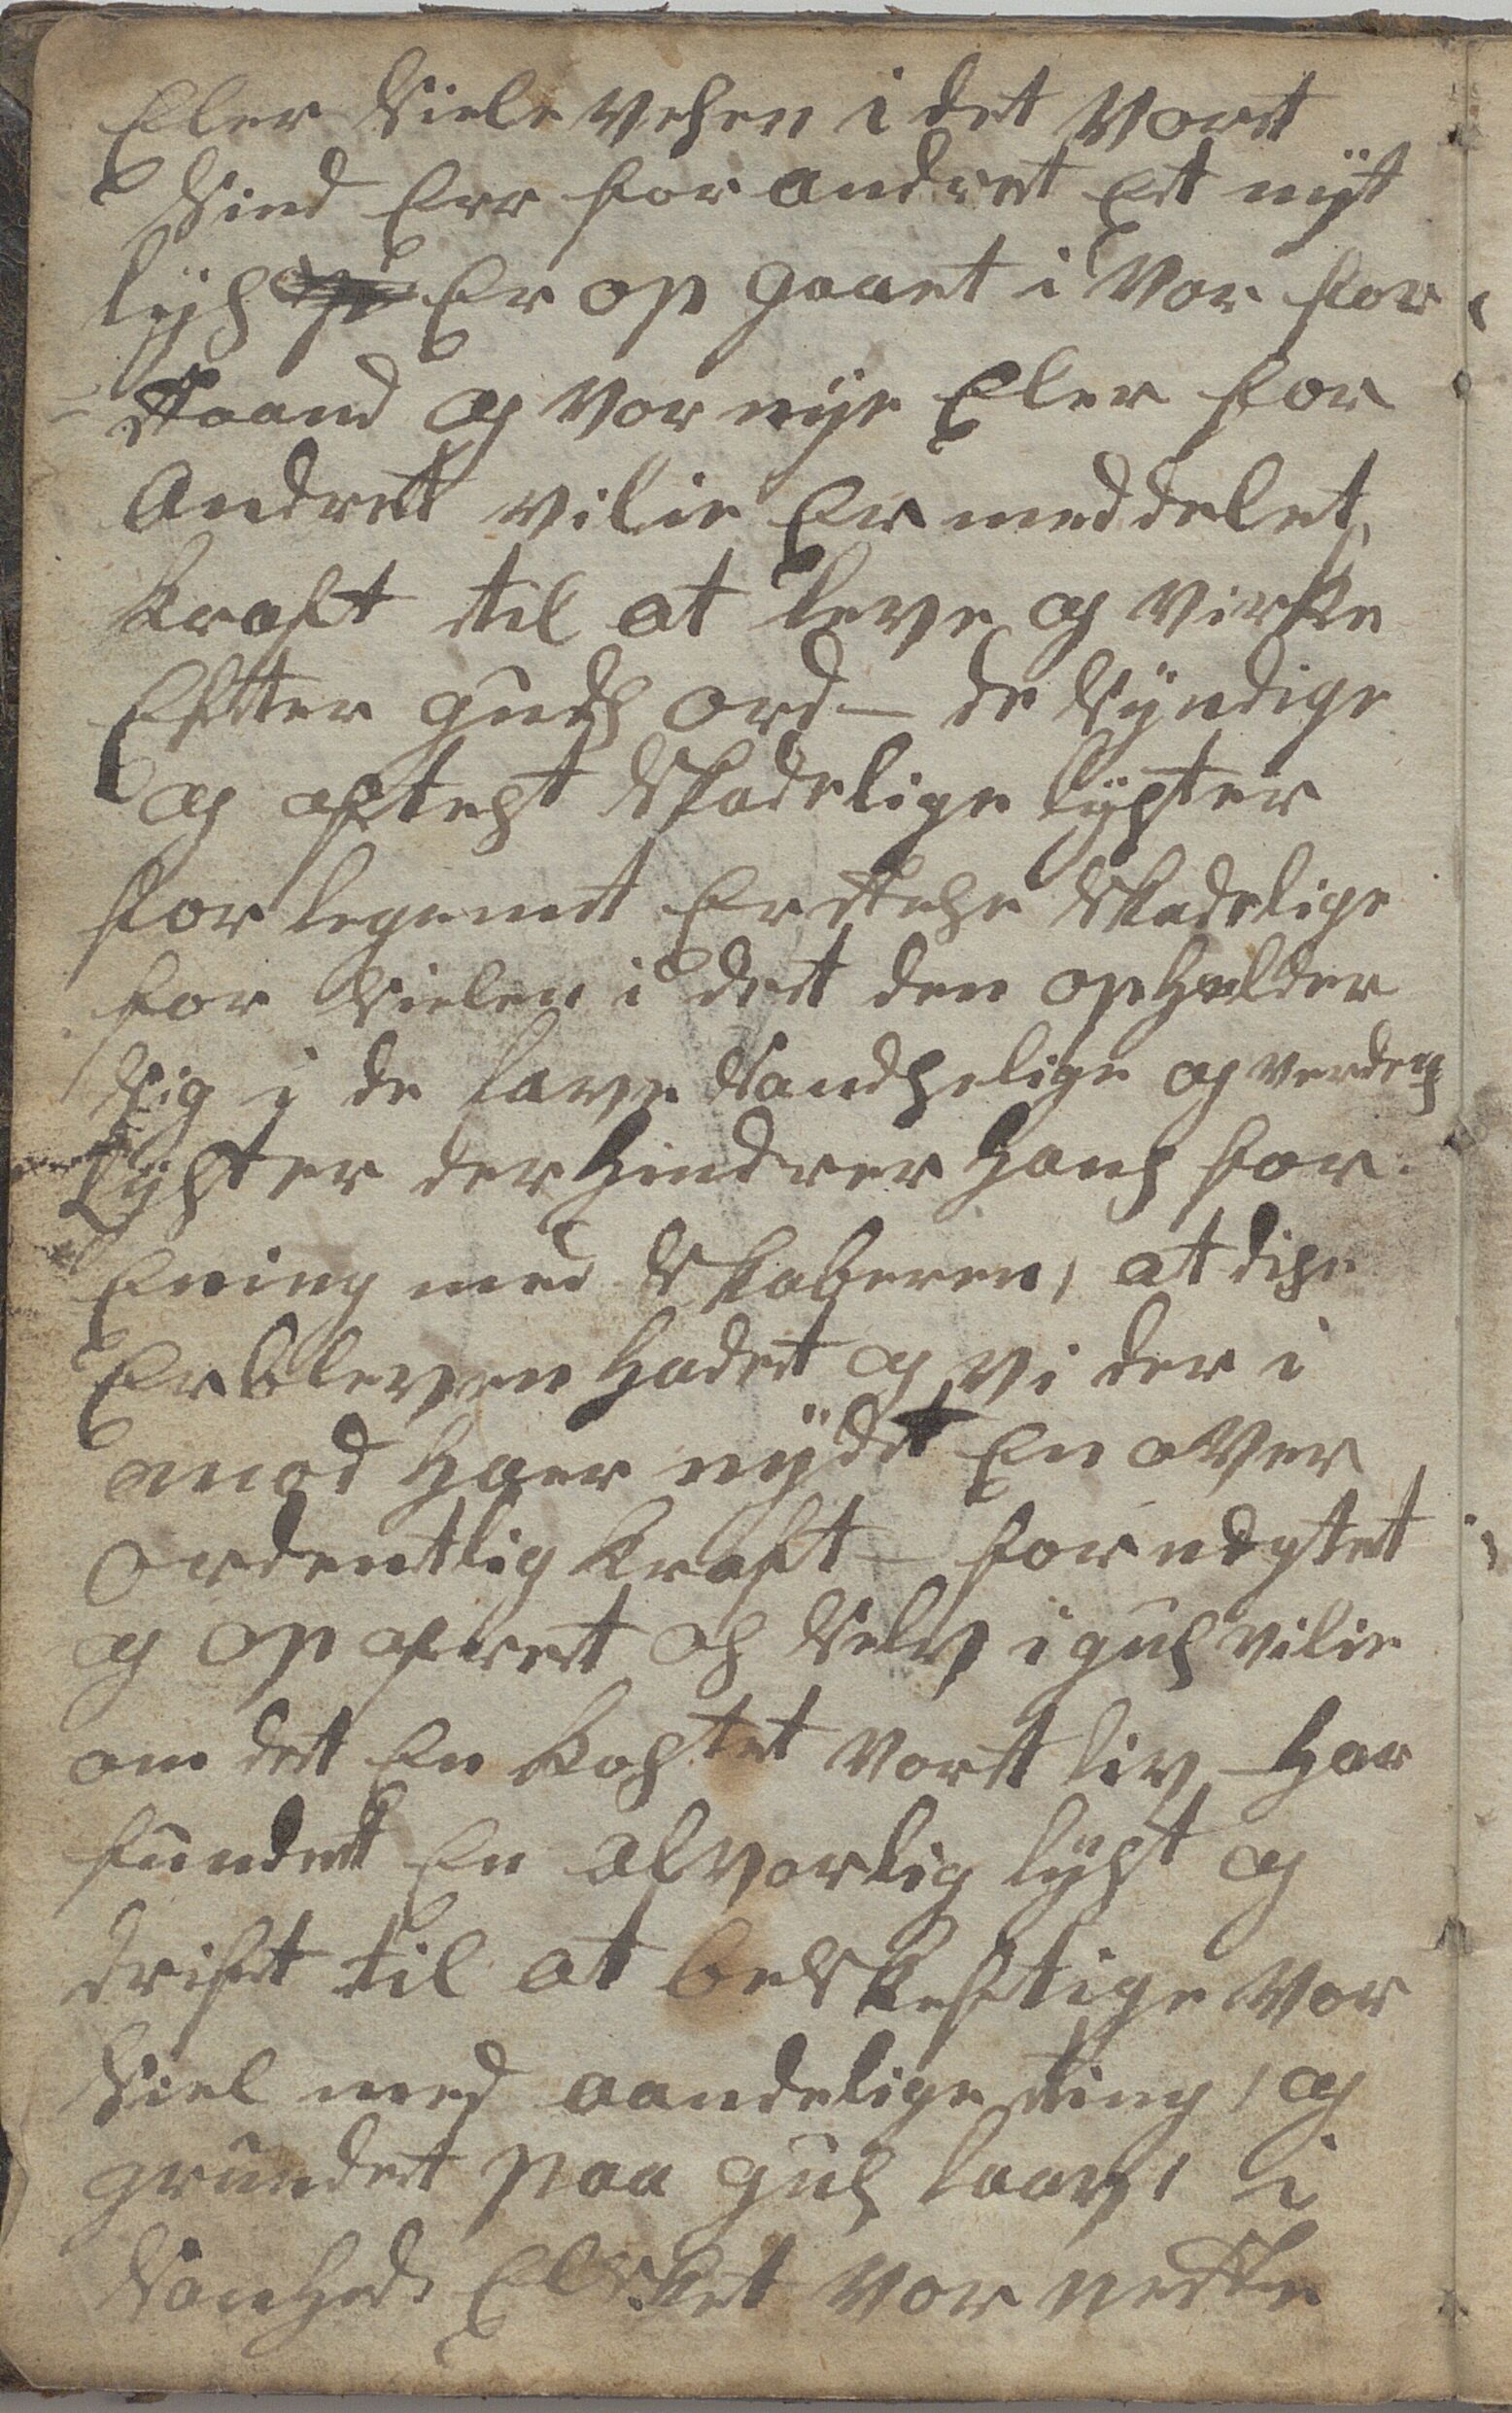 Eler Siele vesen i det Vort
Sind Err for andret Et nÿt
lÿs Er op gaaet i Vor for
staand og Vor nÿe Eler for
Andret vilie Er meddelet,
kraft til at leve og virke
Efter guds ord – de Sÿndige
og oftest Skadelige lÿster
for legemet Er Skadelige
for Sielen i det den opholder
Sig i de lave Sandselige og verdens
Lÿster der hindrer hans for
Ening med Skaberen, at disse
Er bleven hadet og vi der i
mod haver nÿdt En over
Ordentlig kraft – for negtet
og op ofret os Selv i gus vilie
om det En kostet Vort liv – har
fundet En alvorlig lÿst og
drift til at beskeftige Vor
Siel med aandelige ting, og
grundet paa gus lov, i
Sanhed Elsket Vor neste